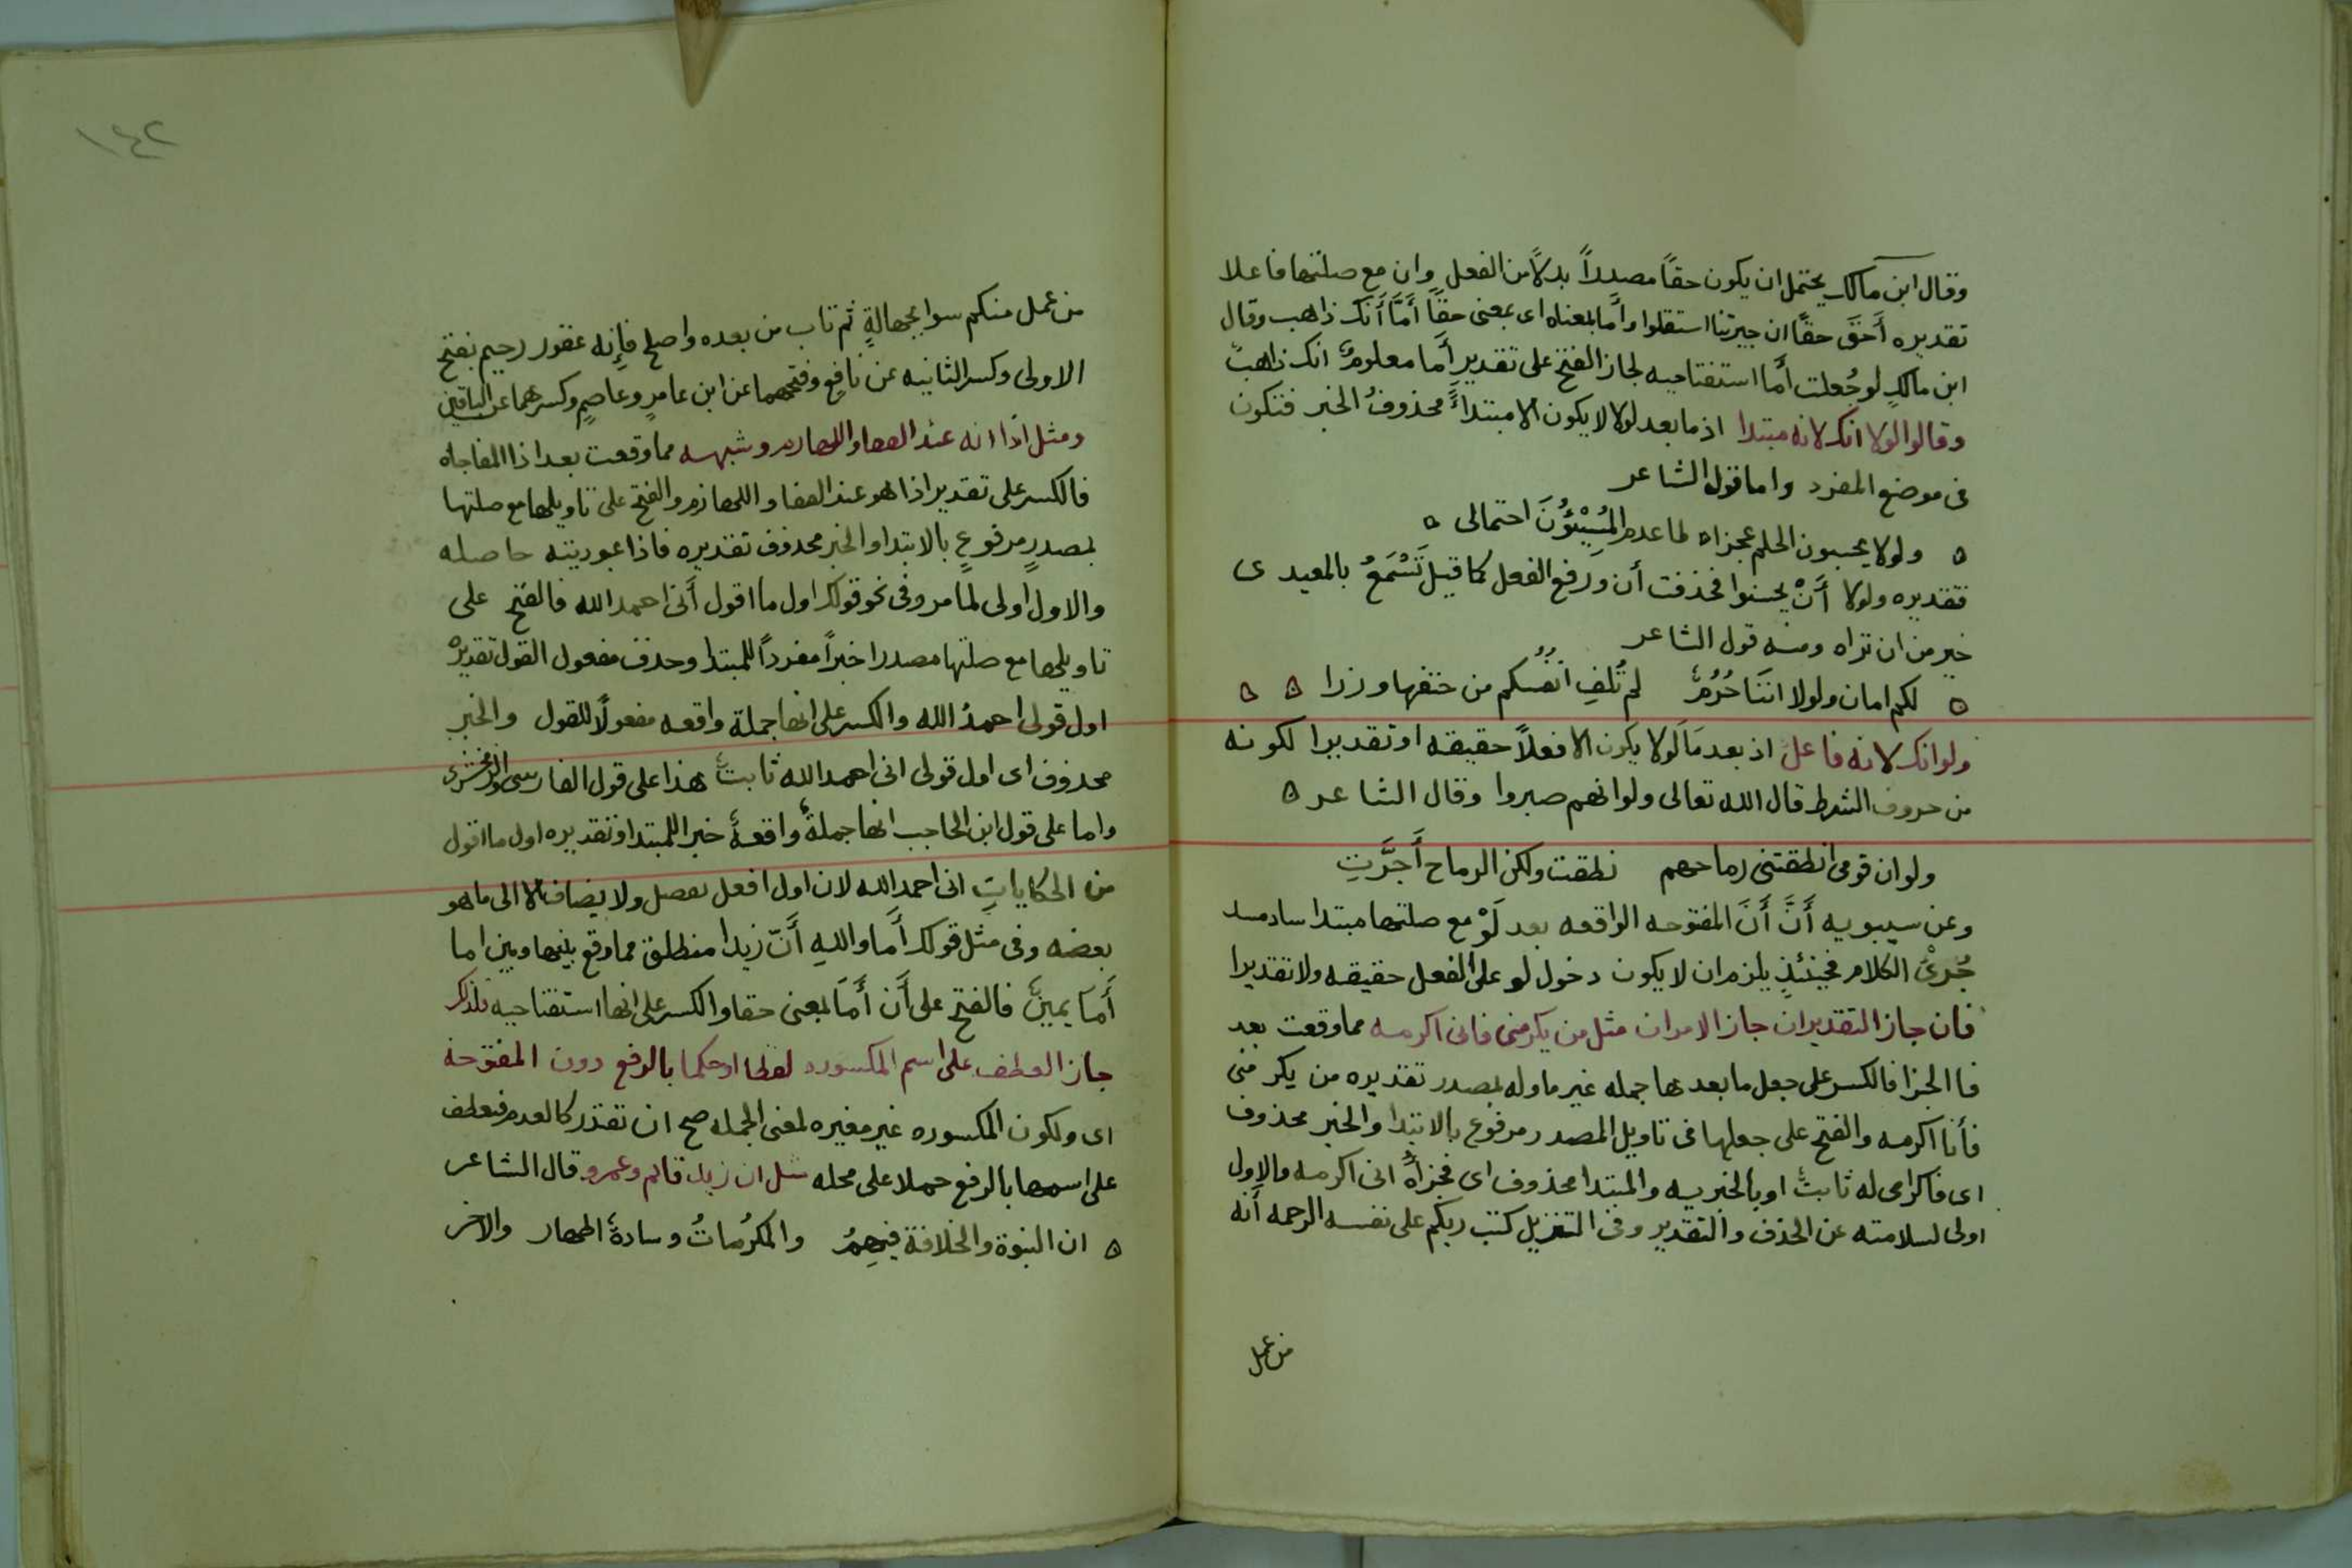 وقال ابن مالك يحتمل ان يكون حقاً مصدراً بدلاً من الفعل وان مع صلتها فاعلا
تقديره أَحَقَّ حقاً ان جيرتنا استقلوا وأما بمعناه اى بمعنى حقاً أَمَّا أَنَك ذاهب وقال
ابن مالكٍ لو جُعلت أَما استفتاحيه لجاز الفتح على تقدير أَما معلومٌ انك ذاهبٌ
وقالوا لولا انك لانه مبتدا اذ ما بعد لولا لا يكون الا مبتداءً محذوفُ الخبر فتكون
فى موضع المفرد واما قول الشاعر
ه ولولا يحسبون الحلم عجزا ه لما عدم المُسِيْئُوْنَ احتمالى ه
فتقديره ولولا أَنْ يحسبوا فحذفت أن ورفع الفعل كما قيل تَسْمَعُ بالمعيدى
خير من ان تراه ومنه قول الشاعر
ه لكم امان ولولا انَنَا حُرُمٌ لم تُلفِ انفُسُكم من حتفها وزرا ه ه
ولو انك لانه فاعلٌ اذ بعد مَا لَولا يكون الا فعلاً حقيقه او تقديرا لكونه
من حروف الشرط قال الله تعالى ولو انهم صبروا وقال الشاعر ه
ولو ان قومى انطقتنى رماحهم نطقت ولكن الرماح أَجَرَّتِ
وعن سيبويه أَنَّ أَنَ المفتوحه الواقعه بعد لَوْ مع صلتها مبتدا ساد مسد
جُزئ الكلام فحينئذٍ يلزم ان لا يكون دخول لو على الفعل حقيقه ولا تقديرا
فان جاز التقديران جاز الامران مثل من يكرمنى فانى اكرمه مما وقعت بعد
فا الجزا فالكسر على جعل ما بعدها جمله غير ماوله بمصدر تقديره من يكرمنى
فأنا اكرمه والفتح على جعلها فى تاويل المصدر مرفوع بالابتدا والخبر محذوف
اى فاكرامى له ثابتٌ او بالخبريه والمبتدا محذوف اى فجزاؤُه انى اكرمه والاول
اولى لسلامته عن الحذف والتقدير وفى التنزيل كتب ربكم على نفسه الرحمه أَنه
من عمل
١٤٢
من عمل منكم سوا بجهالةٍ ثم تاب من بعده واصلح فإنه غفور رحيم بفتح
الاولى وكسر الثانيه عن نافع وفتحهما عن ابن عامرٍ وعاصمٍ وكسرهما عن الباقين
ومثل اذا انه عبد القفا واللهازم وشبهه مما وقعت بعد اذا المفاجاه
فالكسر على تقدير اذا هو عبد القفا واللهازم والفتح على تاويلها مع صلتها
بمصدرٍ مرفوعٍ بالابتدا والخبر محذوف تقديره فاذا عبوديته حاصله
والاول اولى لما مر وفى نحو قولك اول ما اقول أَنى احمد الله فالفتح على
تاويلها مع صلتها مصدرا خبراً مفرداً للمبتدا وحذف مفعول القول تقديرهُ
اول قولى احمدُ الله والكسر على انها جملة واقعه مفعولاً للقول والخبر
محذوف اى اول قولى انى احمد الله ثابتٌ هذا على قول الفارسى والزمخشرى
واما على قول ابن الحاجب انها جملةٌ واقعةٌ خبر اللمبتدا وتقديره اول ما اقول
من الحكاياتِ انى احمد الله لان اول افعل تفضل ولا يضاف الا الى ما هو
بعضه وفى مثل قولك أَما واللهِ أَنّ زيدا منطلق مما وقع بينها وبين اما
أَمَا يمينٌ فالفتح على أَن أَمَا بمعنى حقا والكسر على انها استفتاحيه فلذلك
جاز العطف على اسم المكسوره لفظا او حكما بالرفع دون المفتوحه
اى ولكون المكسوره غير مغيره لمعنى الجمله صح ان تقدر كالعدم فيعطف
على اسمها بالرفع حملا على محله مثل ان زيدا قائم وعمرو قال الشاعر
ه ان النبوة والخلافة فيهِمُ والمكرُماتُ وسادةٌ اطهار والاخر